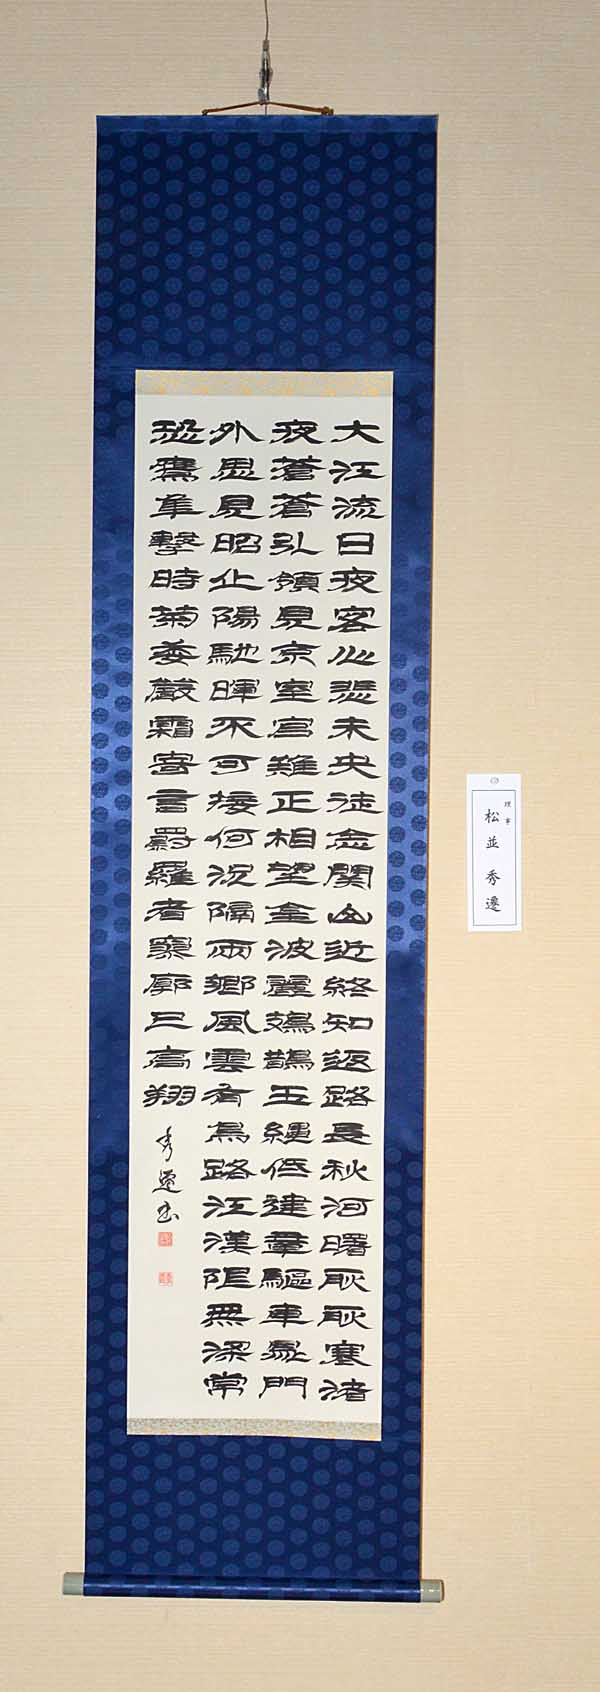 大江流日夜客心悲未央徒念關山近終知返路長秋河曙耿耿寒渚
夜蒼蒼引領見京室宮雉正相望金波麗鳷鵲玉繩低建章驅車鼎門
外思見昭丘陽馳暉不可接何況隔兩鄉風雲有鳥路江漢限無梁常
恐鷹隼擊時菊委嚴霜寄言罻羅者寥廓已高翔
秀遷書
理事
松並 秀遷